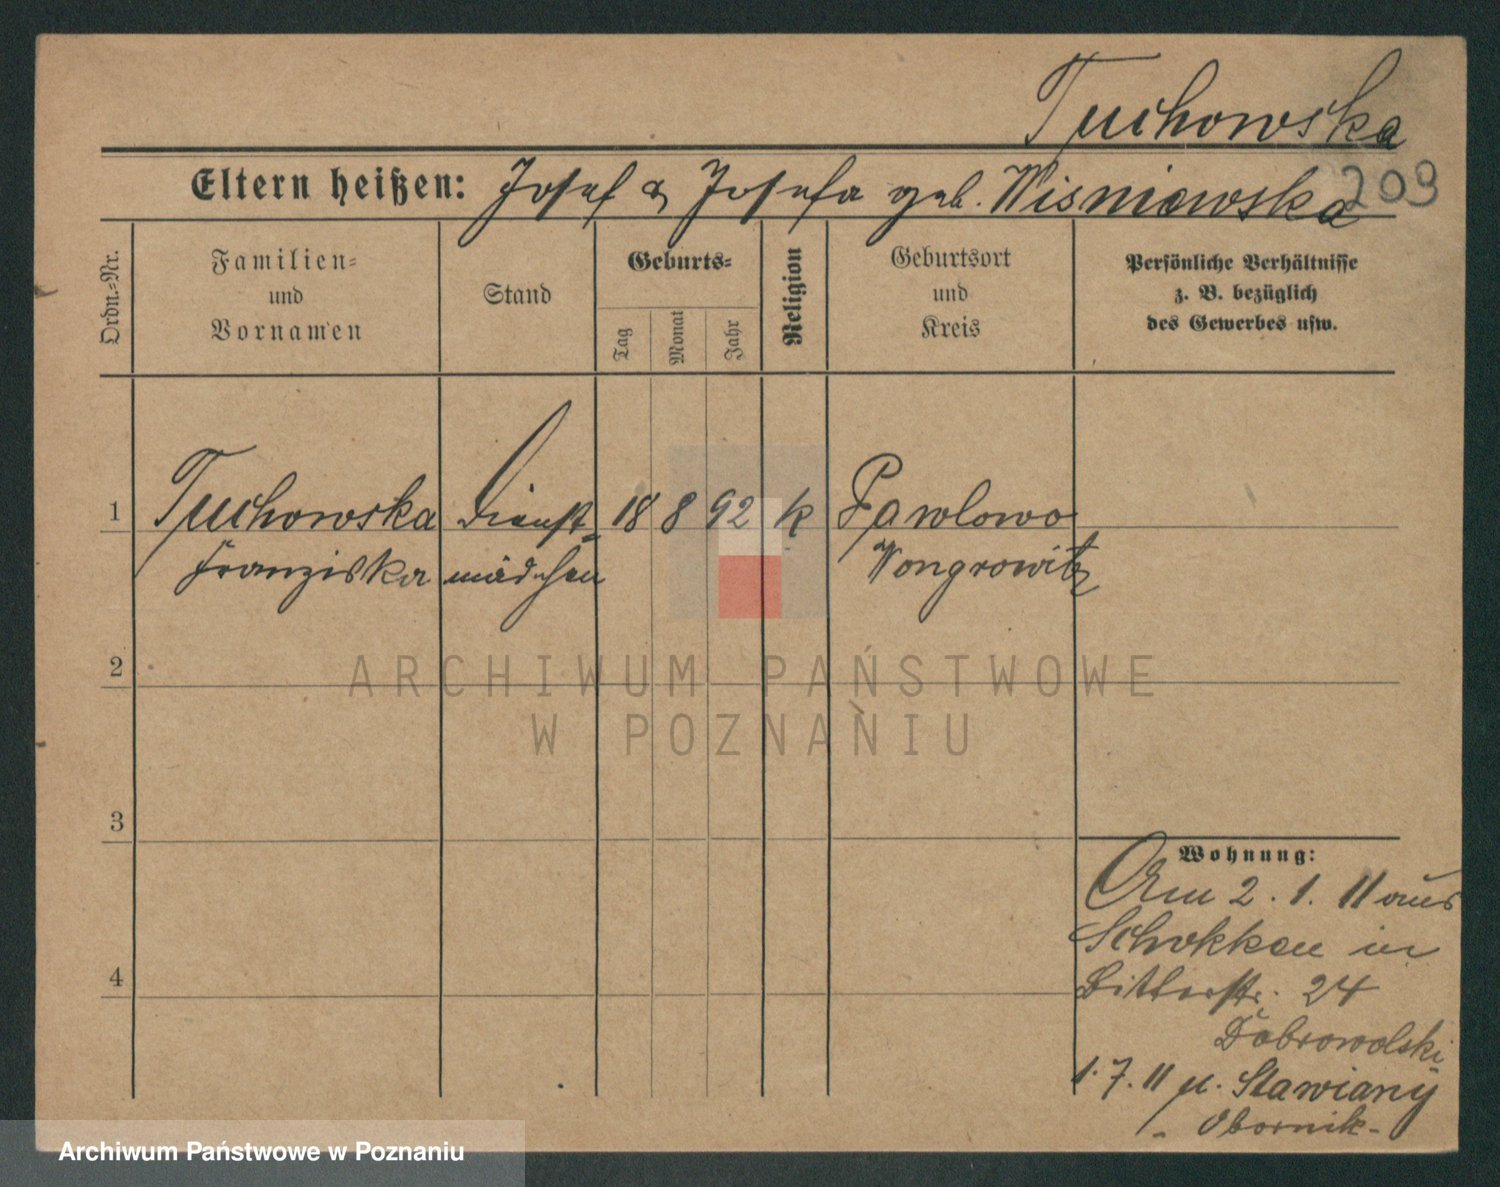 Tuchowska
209
Eltern heißen: Josef & Josefa geb. Wisniewska
Ordn.-Nr.
Familien-
und
Vornamen
Stand
Geburts-
Tag
Monat
Jahr
Religion
Geburtsort
und
Kreis
Persönliche Verhältnisse
z. B. bezüglich
des Gewerbes usw.
1 Tuchowska Dienst- 18 8 92 k Pawlowo
Franziska mädchen Wongrowitz
2
ARCHIWUM PAŃSTWOWE
W POZNANIU
3
Wohnung:
Am 2. 1. 11 aus
Schokken in
Bitterstr. 24
4
Dobrowolski
1. 7. 11 n. Stawiany
- Obornik -
Archiwum Państwowe w Poznaniu